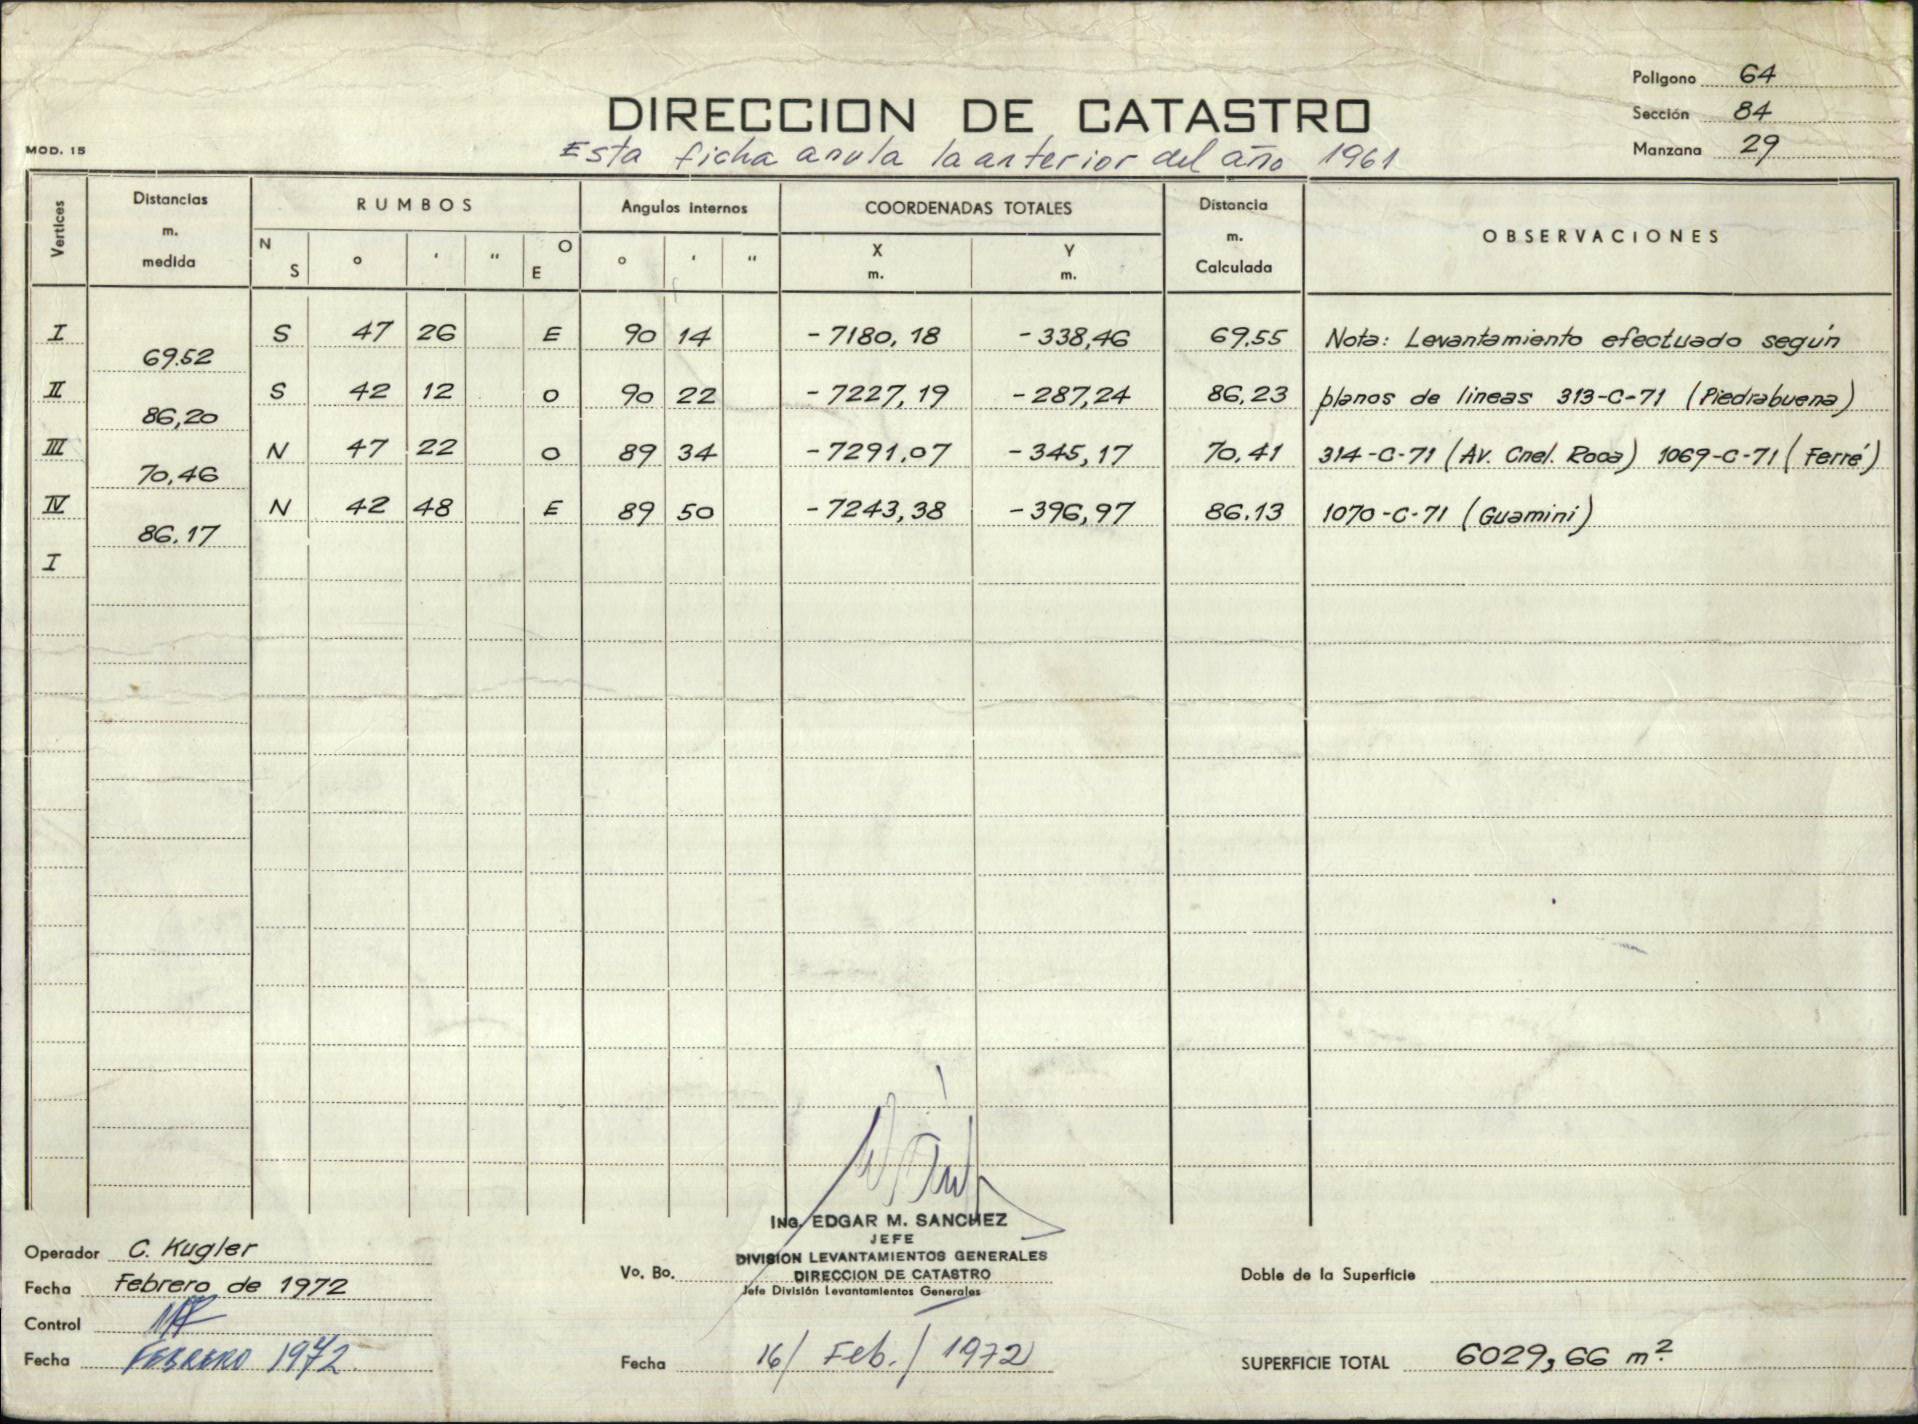 Poligono 64
DIRECCION DE CATASTRO
Sección 84
MOD. 15
Esta ficha anula la anterior del año 1961
Manzana 29
Vertices
Distancias m. medida
RUMBOS
Angulos internos
COORDENADAS TOTALES
Distancia m. Calculada
OBSERVACIONES
N S ° ' " O E ° ' " X m. Y m.
I S 47 26 E 90 14 -7180,18 -338,46 69,55 Nota: Levantamiento efectuado según
69.52
II S 42 12 O 90 22 -7227,19 -287,24 86,23 planos de lineas 313-C-71 (Piedrabuena)
86,20
III N 47 22 O 89 34 -7291,07 -345,17 70,41 314-C-71 (Av. Cnel. Roca) 1069-C-71 (Ferré)
70,46
IV N 42 48 E 89 50 -7243,38 -396,97 86.13 1070-C-71 (Guamini)
86.17
I
ING. EDGAR M. SANCHEZ
JEFE
DIVISION LEVANTAMIENTOS GENERALES
DIRECCION DE CATASTRO
Operador C. Kugler
Fecha Febrero de 1972
Control
Fecha FEBRERO 1972
Vo. Bo.
Jefe División Levantamientos Generales
Fecha 16/ Feb. / 1972
Doble de la Superficie
SUPERFICIE TOTAL 6029,66 m2.